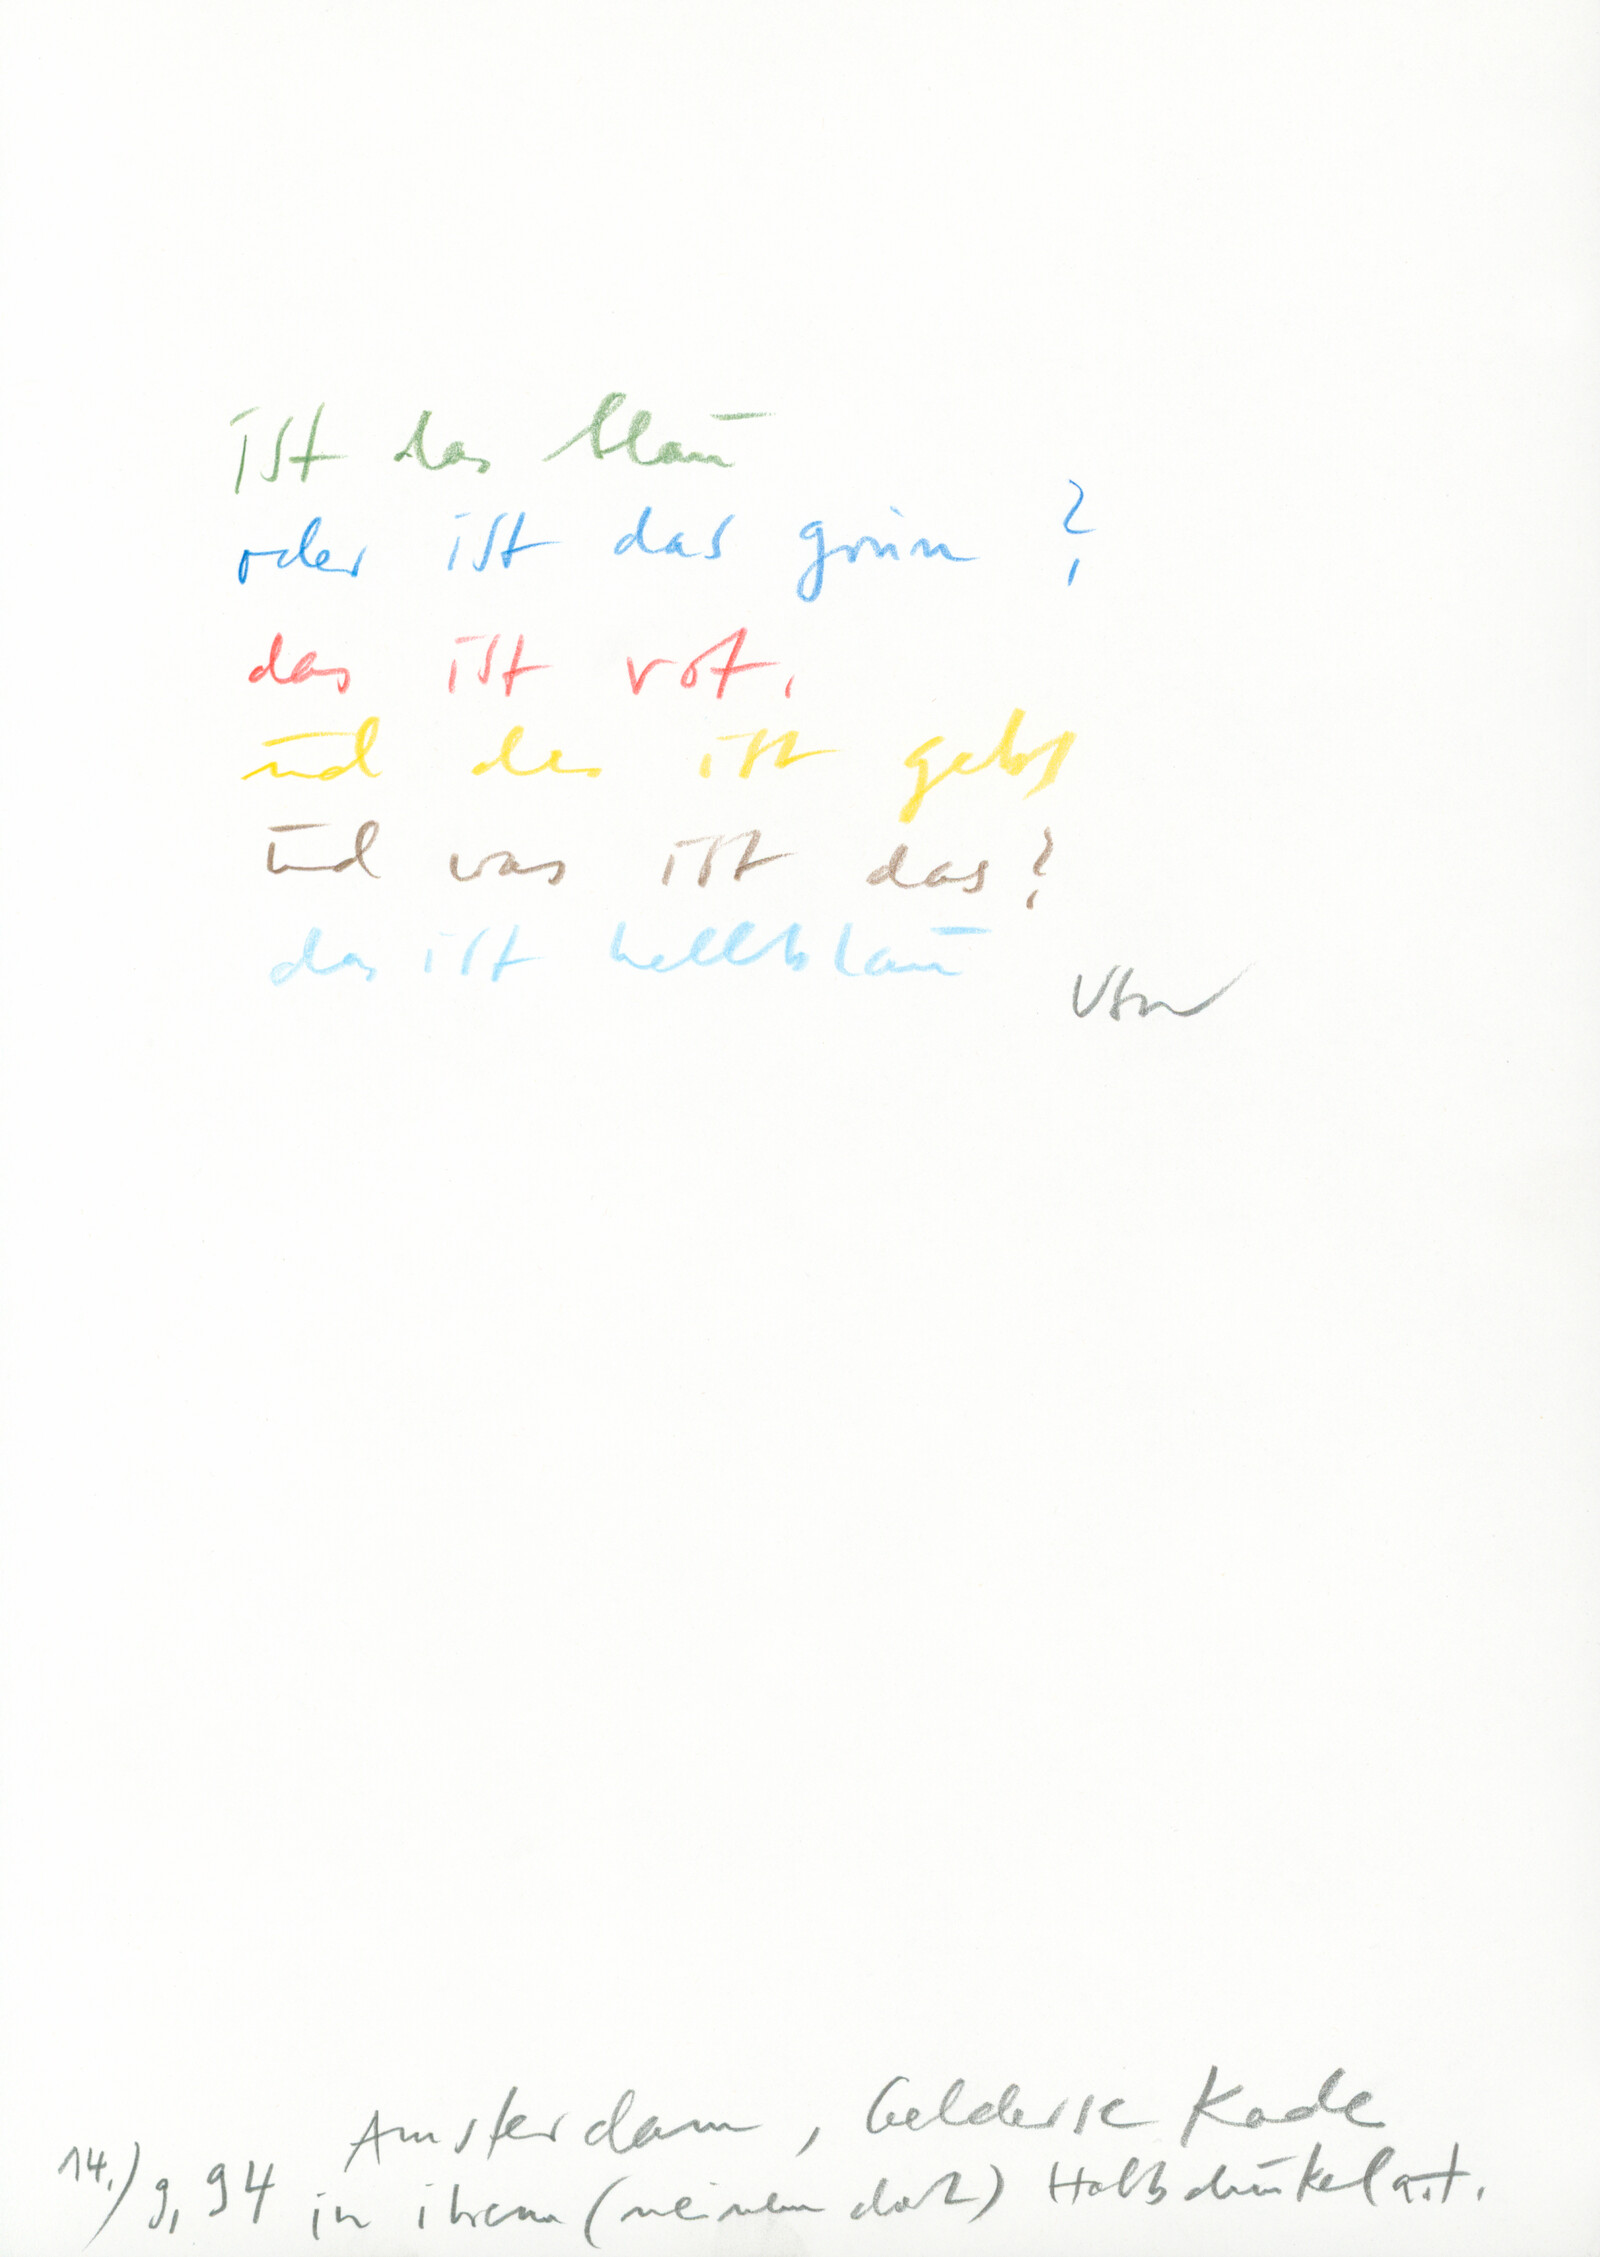 ist das blau
oder ist das grün ?
das ist rot.
und das ist gelb
und was ist das?
das ist hellblau
Amsterdam, Gelderse Kade
14.) 9. 94 in ihrem (meinem dort) Halbdunkel